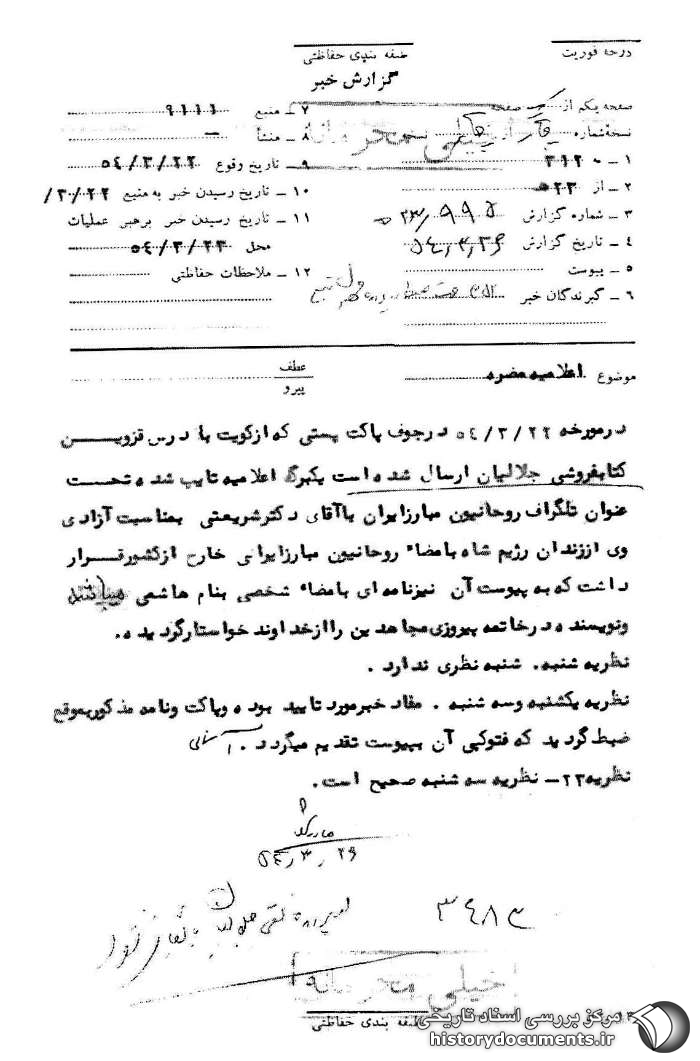 درجه فوریت
طبقه بندی حفاظتی
گزارش خبر
صفحه یکم از یک صفحه
نسخه شماره یک از
۱ ـ ۳۱۲
۲ ـ از ۲۳ ه
۳ ـ شماره گزارش ۲۳/۹۹۵ ه
۴ ـ تاریخ گزارش ۵۴٫۳٫۲۶
۵ ـ پیوست
۶ ـ گیرندگان خبر
۷ ـ منبع ۹۱۱۱
۸ ـ منشأ ـ
۹ ـ تاریخ وقوع ۵۴/۳/۲۲
۱۰ ـ تاریخ رسیدن خبر به منبع ۳/۲۲/
۱۱ ـ تاریخ رسیدن خبر برهبر عملیات
محل ۵۴/۳/۲۳
۱۲ ـ ملاحظات حفاظتی
خیلی محرمانه
موضوع اعلامیه مضره
عطف
پیرو
درمورخه ۵۴/۳/۲۲ درجوف پاکت پستی که ازکویت بادرس قزویـــن
کتابفروشی جلالیان ارسال شده است یکبرگ اعلامیه تایپ شده تحـــت
عنوان تلگراف روحانیون مبارزایران باآقای دکترشریعتی بمناسبت آزادی
وی اززندان رژیم شاه بامضاء روحانیون مبارزایرانی خارج ازکشورقـــرار
داشت که به پیوست آن نیزنامه ای بامضاء شخصی بنام هاشمی میباشد
ونویسنده درخاتمه پیروزی مجاهدین راازخداوند خواستارگردیده.
نظریه شنبه. شنبه نظری ندارد.
نظریه یکشنبه وسه شنبه. مفاد خبرمورد تایید بوده وپاکت ونامه مذکوربموقع
ضبط گردید که فتوکپی آن بپیوست تقدیم میگردد.
نظریه ۲۳ـ نظریه سه شنبه صحیح است.
۵۴٫۳٫۲۶
۳۴۸۳
خیلی محرمانه
طبقه بندی حفاظتی
مرکز بررسی اسناد تاریخی
historydocuments.ir